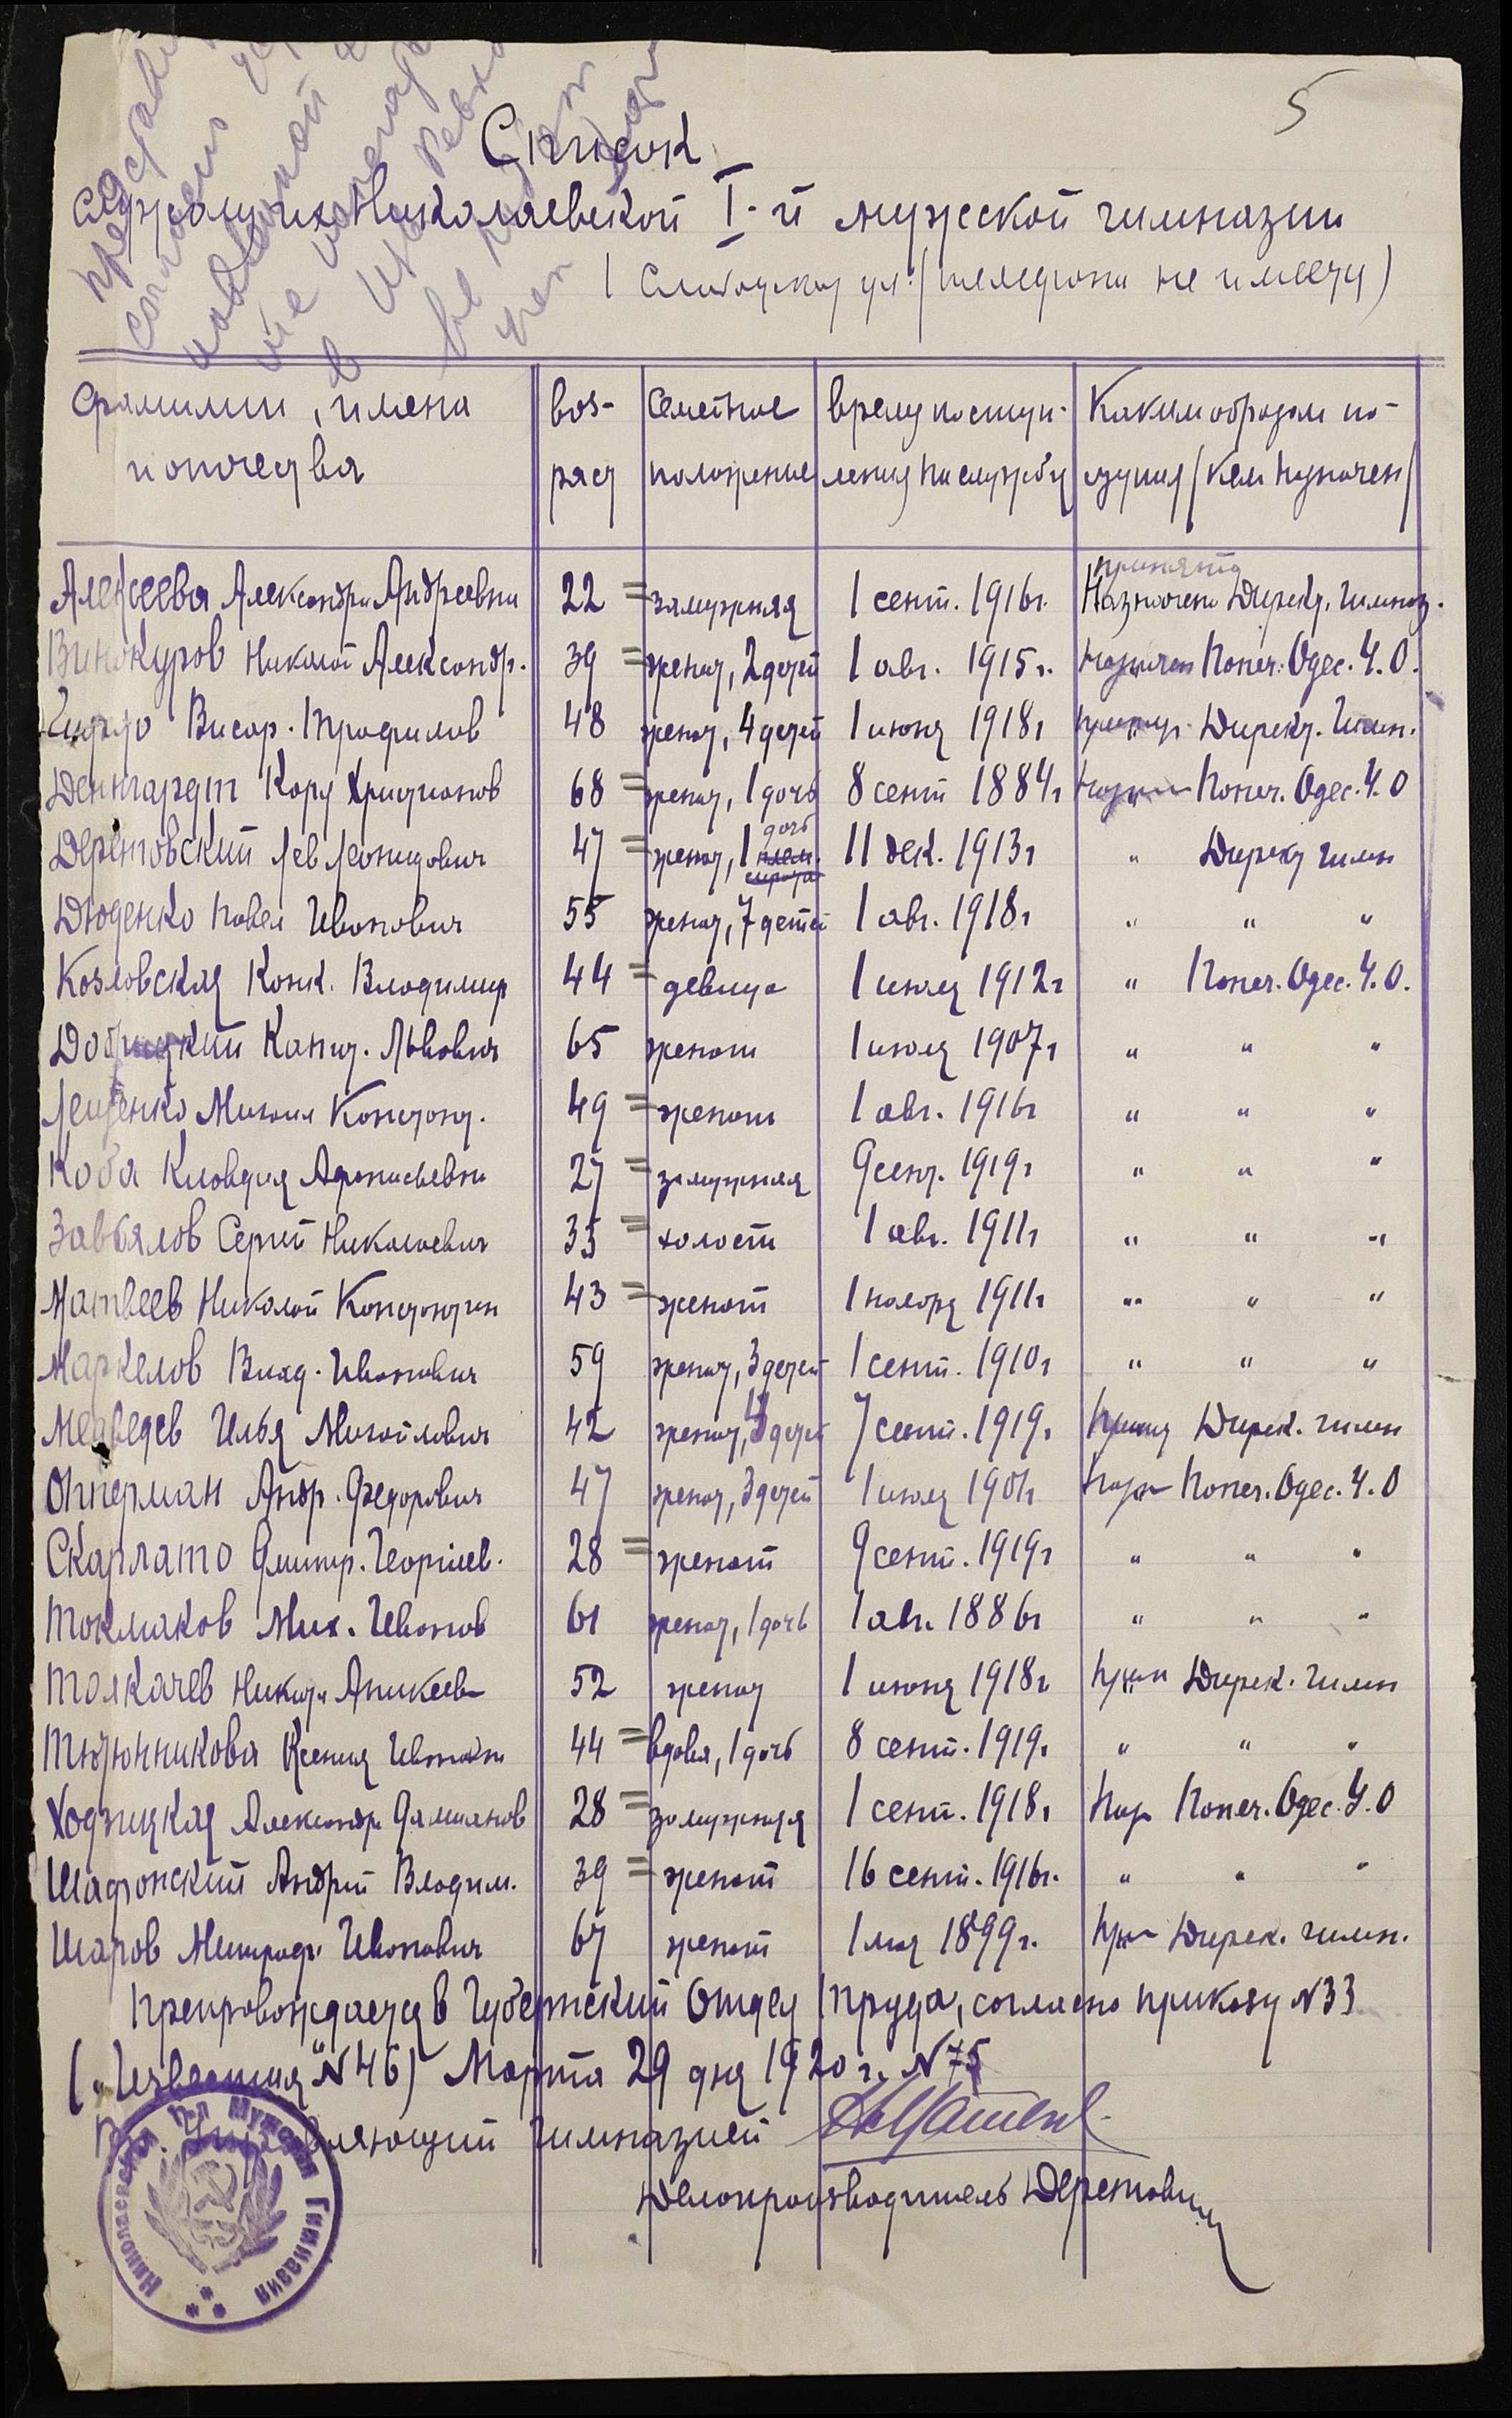 5
Список
служащих Николаевской I-й мужской гимназии
(Слободская ул. / телефона не имеет)
Фамилии, имена и отчества | воз-раст | Семейное положение | время поступ-ления на службу | Каким образом по-ступил / кем назначен /
принята
Алексеева Александра Андреевна 22 = замужняя 1 сент. 1916г. Назначена Директ. Гимназ.
Винокуров Николай Александр. 39 = женат, 2 детей 1 авг. 1915г. назначен Попеч. Одес. У.О.
Висар. Трофимов 48 женат, 4 детей 1 июня 1918г Директ. Гимн.
Денгардт Карл Христианов 68 = женат, 1 дочь 8 сент 1884г Попеч. Одес. У.О
дочь
Дерентовский Лев Леонидович 47 = женат, 1 плем. 11 дек. 1913г " Директ гимн
сирота
Дюденко Павел Иванович 55 женат, 7 детей 1 авг. 1918г " " "
Козловская Конк. Владимир 44 = девица 1 июля 1912г " Попеч. Одес. У.О.
Львович 65 женат 1 июля 1907г " " "
Лещенко Михаил Констант. 49 = женат 1 авг. 1916г " " "
Коба Клавдия Афанасьевна 27 = замужняя 9 сент. 1919г " " "
Завьялов Сергей Николаевич 35 = холост 1 авг. 1911г " " "
Матвеев Николай Константин 43 = женат 1 ноября 1911г " " "
Маркелов Влад. Иванович 59 женат, 3 детей 1 сент. 1910г " " "
Медведев Илья Михайлович 42 женат, детей 7 сент. 1919г Принят Дирек. гимн
Опперман Андр. Федорович 47 женат, 3 детей 1 июля 1901г Назн Попеч. Одес. У.О
Скарлато Димитр. Георгиев. 28 = женат 9 сент. 1919г " " "
Токмаков Мих. Иванов 61 женат, 1 дочь 1 авг. 1886г " " "
Толкачев Никита Аникеев 52 женат 1 июня 1918г Прин Дирек. Гимн
Тютюнникова Ксения Ивановна 44 = вдова, 1 дочь 8 сент. 1919г " " "
Ходницкая Александра Дамианов 28 = замужняя 1 сент. 1918г Наз Попеч. Одес. У.О
Шафонский Андрей Владим. 39 = женат 16 сент. 1916г. " " "
Шаров Митроф. Иванович 67 женат 1 мая 1899г. Прин Дирек. гимн.
Препровождается в Губернский Отдел Труда, согласно приказу №33
(„Известия" №46) Марта 29 дня 1920 г. № 75
Управляющий гимназией
Делопроизводитель Дерентовский
Николаевская I-я Мужская Гимназия